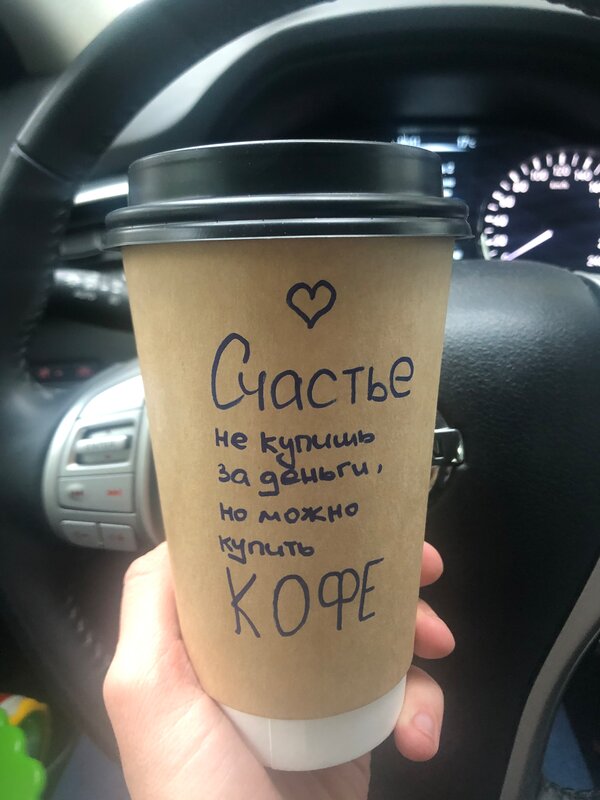 Счастье
не купишь
за деньги,
но можно
купить
КОФЕ